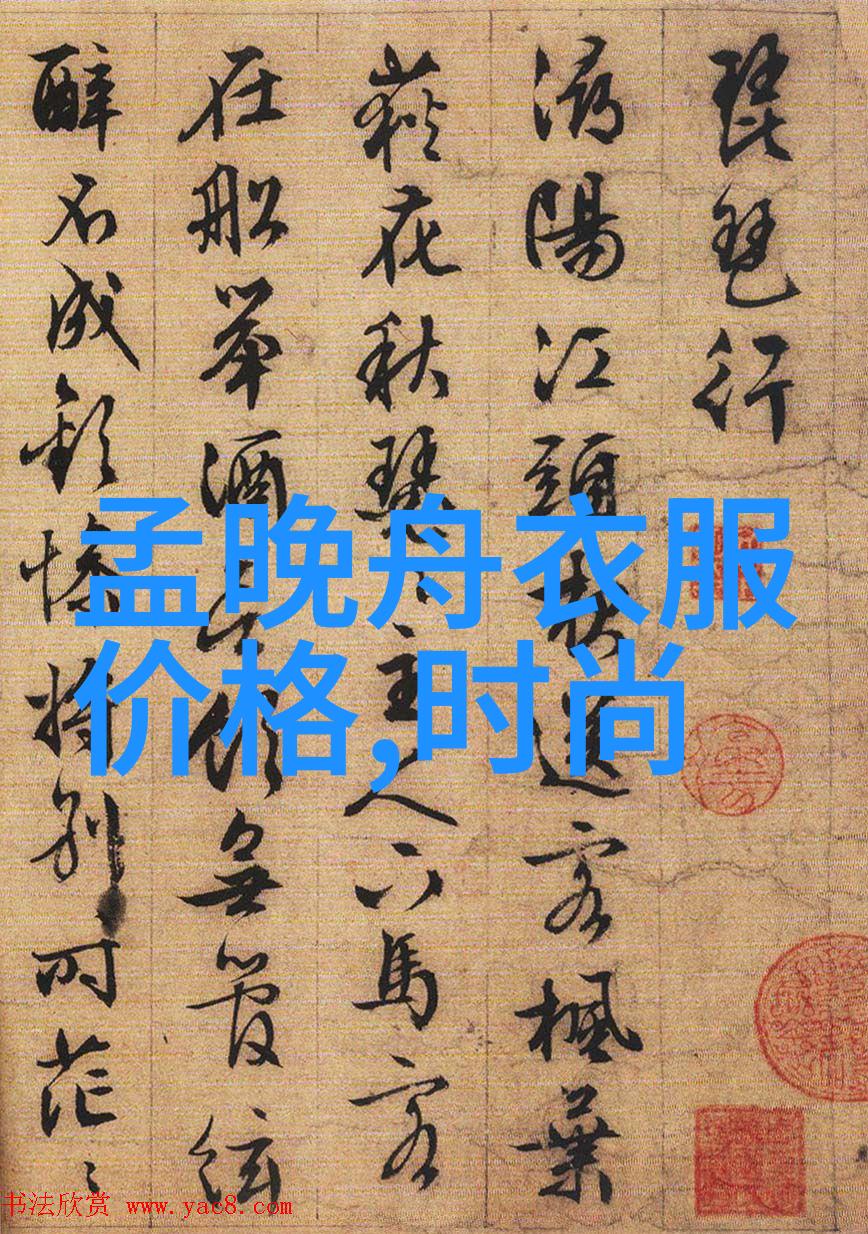 琵琶行
潯陽江頭送客楓葉
荻花秋瑟々主人下馬客
在船舉酒飲無管絃
醉不成歡慘將別々時茫々
孟晚舟衣服
价格,时尚
书法欣赏 www.yac8.com